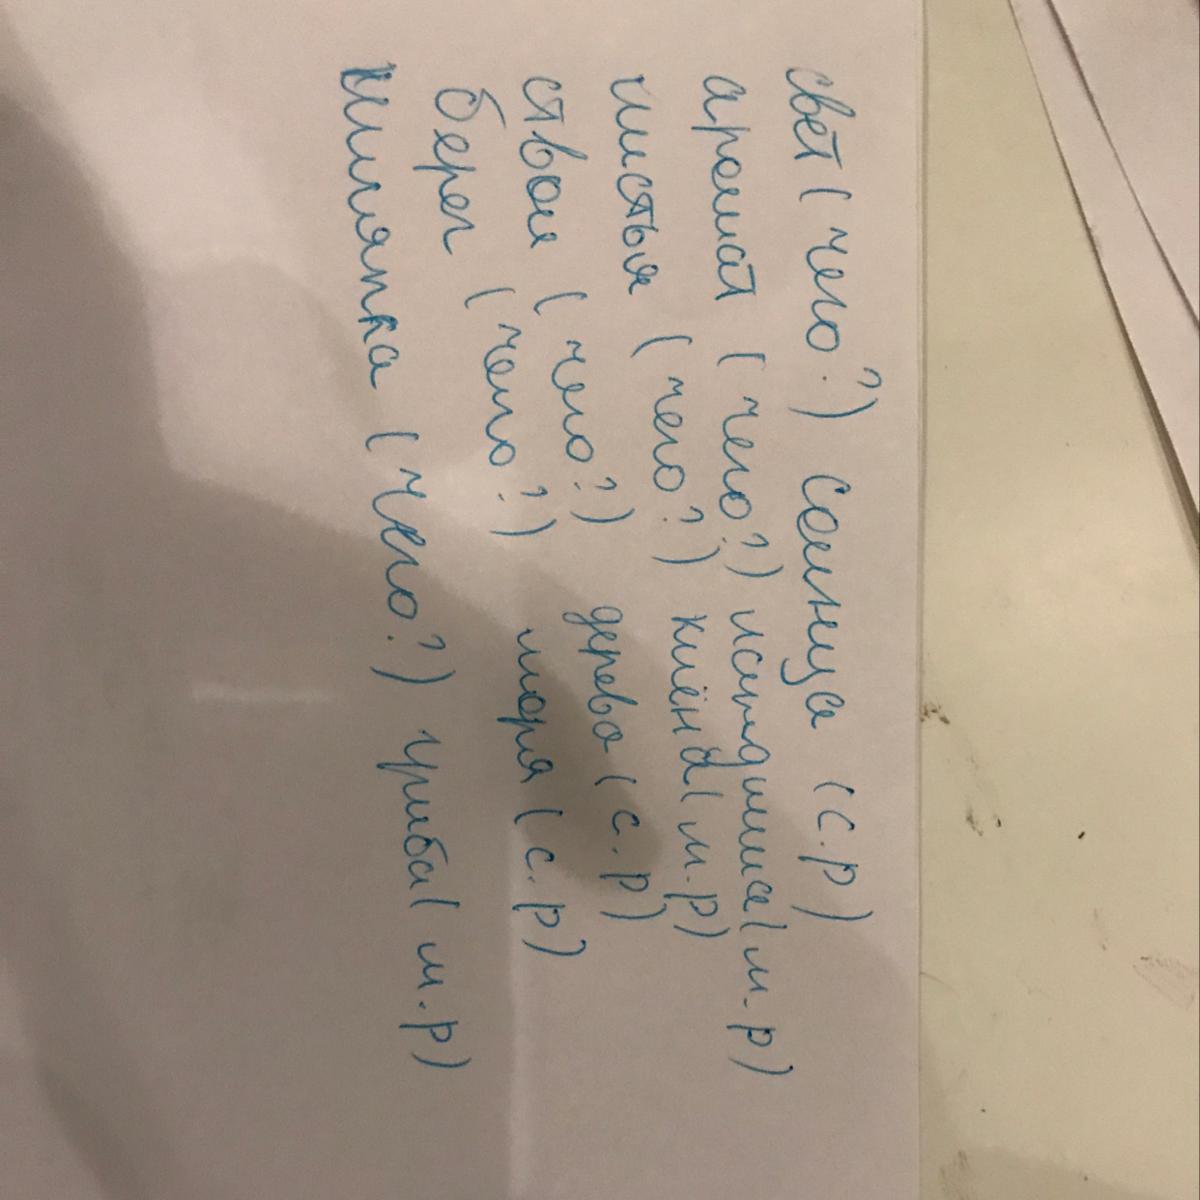 свет (чего?) солнца (с.р)
аромат (чего?) ландыша (м.р)
листья (чего?) клёна (м.р)
ствол (чего?) дерева (с.р)
берег (чего?) моря (с.р)
шляпка (чего?) гриба (м.р)